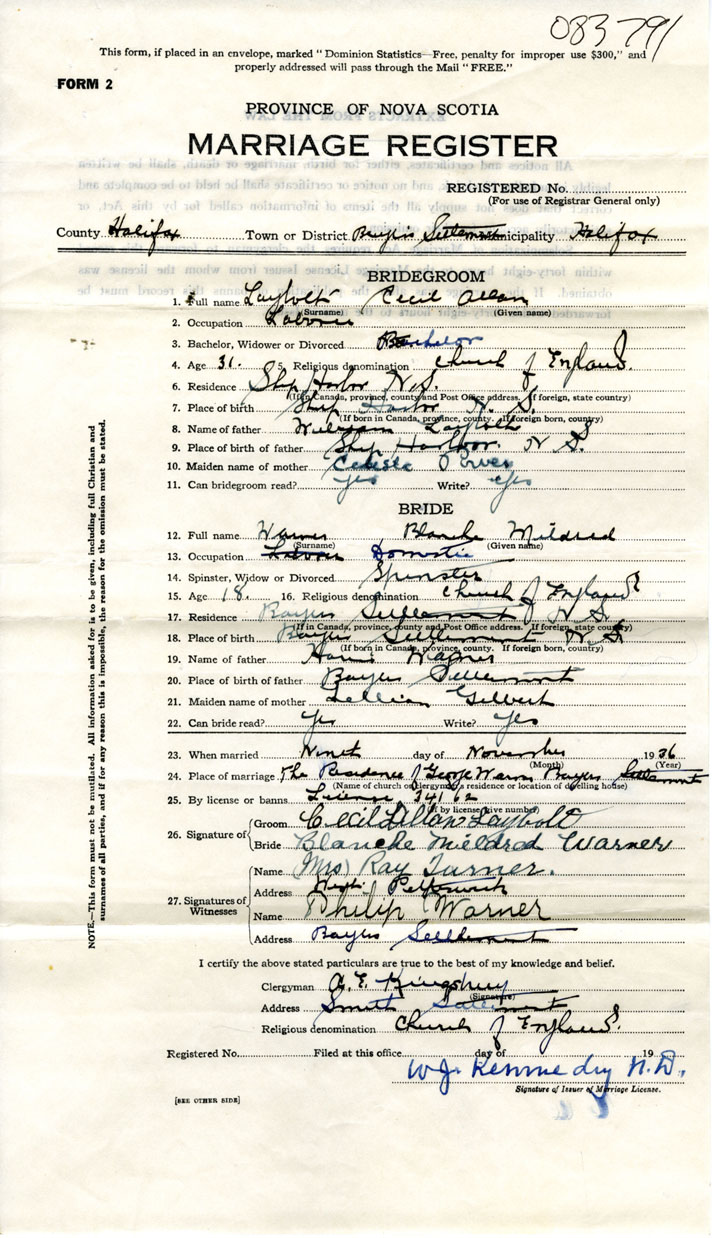 083791
This form, if placed in an envelope, marked "Dominion Statistics—Free, penalty for improper use $300," and
properly addressed will pass through the Mail "FREE."
FORM 2
PROVINCE OF NOVA SCOTIA
MARRIAGE REGISTER
REGISTERED No.
(For use of Registrar General only)
County Halifax Town or District Bayers Settlement Municipality Halifax
BRIDEGROOM
1. Full name Laybolt Cecil Allan
(Surname) (Given name)
2. Occupation Labourer
3. Bachelor, Widower or Divorced Bachelor
4. Age 31. 5. Religious denomination Church of England.
6. Residence Ship Harbor N.S.
(If in Canada, province, county and Post Office address. If foreign, state country)
7. Place of birth Ship Harbor N. S.
(If born in Canada, province, county. If foreign born, country)
8. Name of father William Laybolt
9. Place of birth of father Ship Harbor N S.
10. Maiden name of mother Celeste
11. Can bridegroom read? yes Write? yes
BRIDE
12. Full name Warner Blanche Mildred
(Surname) (Given name)
13. Occupation Labour Domestic
14. Spinster, Widow or Divorced Spinster
15. Age 18. 16. Religious denomination Church of England
17. Residence Bayers Settlement N S.
(If in Canada, province, county and Post Office address. If foreign, state country)
18. Place of birth Bayers Settlement N. S
(If born in Canada, province, county. If foreign born, country)
19. Name of father Warner
20. Place of birth of father Bayers Settlement
21. Maiden name of mother Lillian Gilbert
22. Can bride read? Yes Write? Yes
23. When married Ninth day of November 1936
(Month) (Year)
24. Place of marriage The Residence of George Warner Bayers Settlement
(Name of church or clergyman's residence or location of dwelling house)
25. By license or banns License 34162
(If by license, give number)
26. Signature of
Groom Cecil Allan Laybolt
Bride Blanche Mildred Warner
27. Signatures of Witnesses
Name (Mrs) Ray Turner.
Address West Petpeswick
Name Philip Warner
Address Bayers Settlement
I certify the above stated particulars are true to the best of my knowledge and belief.
Clergyman A. E. Kingsbury
(Signature)
Address Smith Settlement
Religious denomination Church of England.
Registered No. Filed at this office day of 19
W. J. Kennedy M.D.,
Signature of Issuer of Marriage License.
[SEE OTHER SIDE]
NOTE.—This form must not be mutilated. All information asked for is to be given, including full Christian and
surnames of all parties, and if for any reason this is impossible, the reason for the omission must be stated.